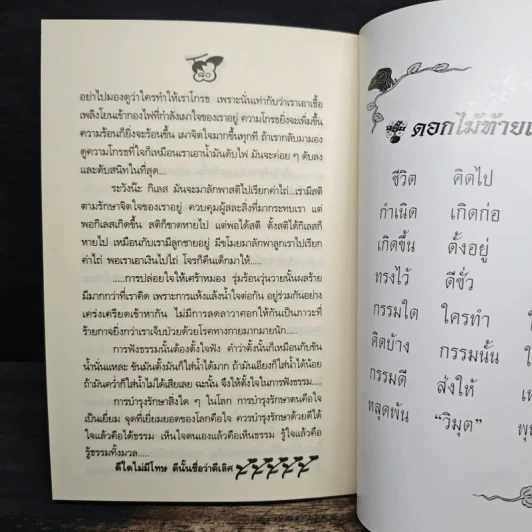 ๘๐
อย่าไปมองดูว่าใครทำให้เราโกรธ เพราะนั่นเท่ากับว่าเราเอาเชื้อ
เพลิงโยนเข้ากองไฟที่กำลังเผาใจของเราอยู่ ความโกรธยิ่งจะเพิ่มขึ้น
ความร้อนก็ยิ่งจะร้อนขึ้น เผาจิตใจมากขึ้นทุกที ถ้าเรากลับมามอง
ดูความโกรธที่ใจก็เหมือนเราเอาน้ำมันดับไฟ มันจะค่อย ๆ ดับลง
และดับสนิทในที่สุด...
ระวังน๊ะ กิเลส มันจะมาลักพาสติไปเรียกค่าไถ่...เรามีสติ
ตามรักษาจิตใจของเราอยู่ ควบคุมผู้สละสิ่งที่มากระทบเรา แต่
พอกิเลสเกิดขึ้น สติก็ขาดหายไป แต่พอได้สติ ตั้งสติได้กิเลสก็
หายไป เหมือนกับเรามีลูกชายอยู่ มีขโมยมาลักพาลูกเราไปเรียก
ค่าไถ่ พอเราเอาเงินไปไถ่ โจรก็คืนเด็กมาให้.....
.....การปล่อยใจให้เศร้าหมอง รุ่มร้อนวุ่นวายนั้นผลร้าย
มีมากกว่าที่เราคิด เพราะการแห้งแล้งน้ำใจต่อกัน อยู่ร่วมกันอย่าง
เคร่งเครียดเข้าหากัน ไม่มีการลดลาวาศอกให้กันเป็นภาวะที่
ร้ายกาจยิ่งกว่าเราเจ็บป่วยด้วยโรคทางกายมากมายนัก.....
การฟังธรรมนั้นต้องตั้งใจฟัง คำว่าตั้งนั้นก็เหมือนกับขัน
น้ำนั่นแหละ ขันมันตั้งมันก็ใส่น้ำได้มาก ถ้ามันเอียงก็ใส่น้ำได้น้อย
ถ้ามันคว่ำก็ใส่น้ำไม่ได้เสียเลย ฉะนั้น จึงให้ตั้งใจในการฟังธรรม.....
การบำรุงรักษาสิ่งใด ๆ ในโลก การบำรุงรักษาตนคือใจ
เป็นเยี่ยม จุดที่เยี่ยมยอดของโลกคือใจ ควรบำรุงรักษาด้วยดีได้
ใจแล้วคือได้ธรรม เห็นใจตนเองแล้วคือเห็นธรรม รู้ใจแล้วคือ
รู้ธรรมทั้งมวล
ดีใดไม่มีโทษ ดีนั้นชื่อว่าดีเลิศ
ดอกไม้ท้าย
ชีวิต คิดไป
กำเนิด เกิดก่อ
เกิดขึ้น ตั้งอยู่
ทรงไว้ ดีชั่ว
กรรมใด ใครทำ
คิดบ้าง กรรมนั้น
กรรมดี ส่งให้
หลุดพ้น “วิมุต”